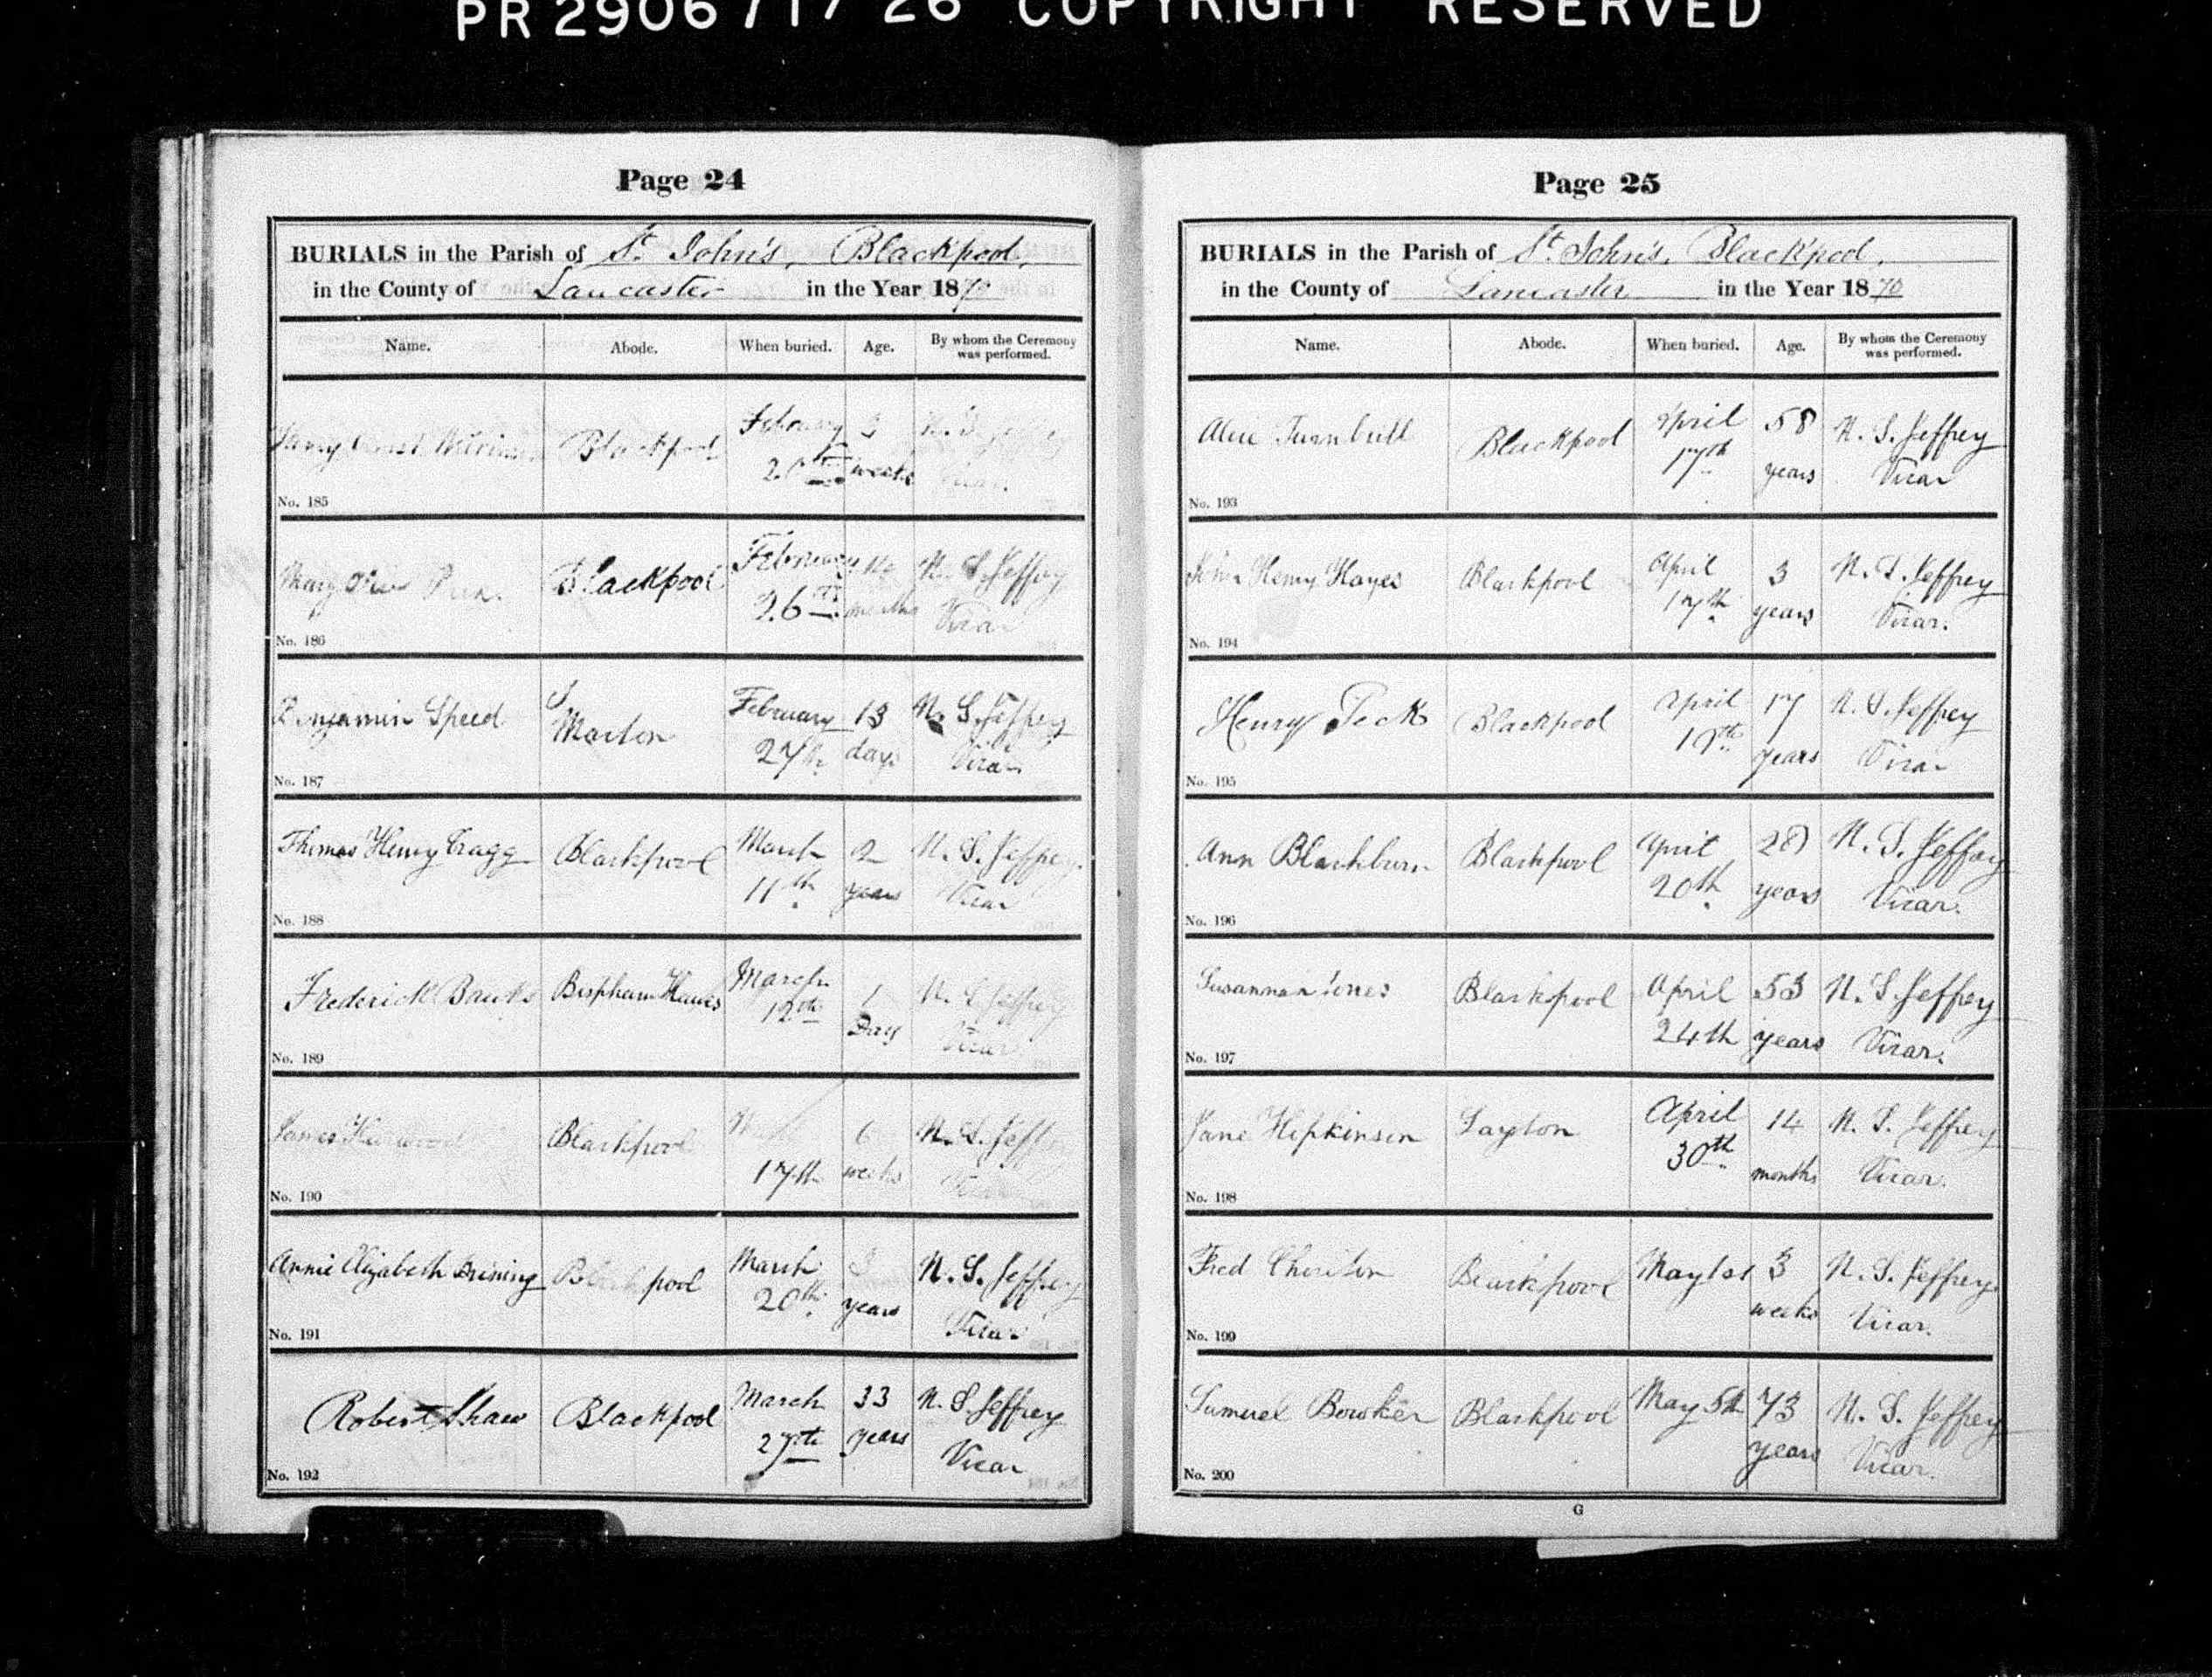 PR 2906 / 1 / 26 COPYRIGHT RESERVED
Page 24
BURIALS in the Parish of St. John's, Blackpool,
in the County of Lancaster in the Year 1870
Name. Abode. When buried. Age. By whom the Ceremony was performed.
Blackpool February 3 N. S. Jeffrey
20th weeks Vicar.
No. 185
Mary Blackpool February N. S. Jeffrey
26th months Vicar
No. 186
Benjamin Speed Marton February 13 N. S. Jeffrey
27th days Vicar
No. 187
Thomas Henry Cragg Blackpool March 2 N. S. Jeffrey
11th years Vicar
No. 188
Frederick Banks Bispham Hawes March 1 N. S. Jeffrey
12th Day Vicar
No. 189
James Blackpool 6 N. S. Jeffrey
17th weeks Vicar
No. 190
Annie Elizabeth Brining Blackpool March N. S. Jeffrey
20th years Vicar
No. 191
Robert Shaw Blackpool March 33 N. S. Jeffrey
27th years Vicar
No. 192
Page 25
BURIALS in the Parish of St. John's, Blackpool,
in the County of Lancaster in the Year 1870
Name. Abode. When buried. Age. By whom the Ceremony was performed.
Alice Turnbull Blackpool April 58 N. S. Jeffrey
17th years Vicar
No. 193
John Henry Hayes Blackpool April 3 N. S. Jeffrey
17th years Vicar.
No. 194
Henry Peck Blackpool April 17 N. S. Jeffrey
19th years Vicar
No. 195
Ann Blackburn Blackpool April 28 N. S. Jeffrey
20th years Vicar.
No. 196
Susannah Jones Blackpool April 53 N. S. Jeffrey
24th years Vicar.
No. 197
Jane Hipkinson Layton April 14 N. S. Jeffrey
30th months Vicar.
No. 198
Fred Cheriton Blackpool May 1st 3 N. S. Jeffrey
weeks Vicar.
No. 199
Samuel Bowker Blackpool May 5th 73 N. S. Jeffrey
years Vicar.
No. 200
G